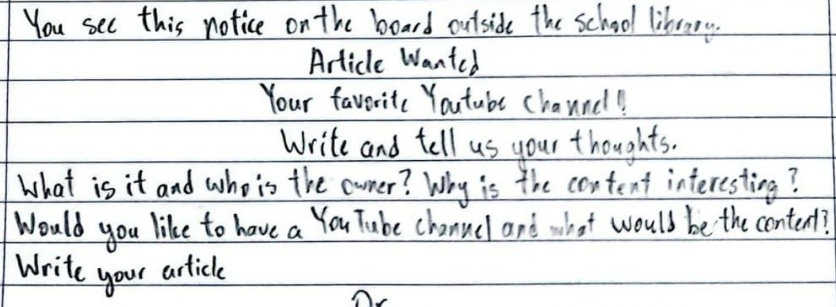 You see this notice on the board outside the school library.
Article Wanted
Your favorite Youtube channel!
Write and tell us your thoughts.
What is it and who is the owner? Why is the content interesting?
Would you like to have a YouTube channel and what would be the content?
Write your article
Or